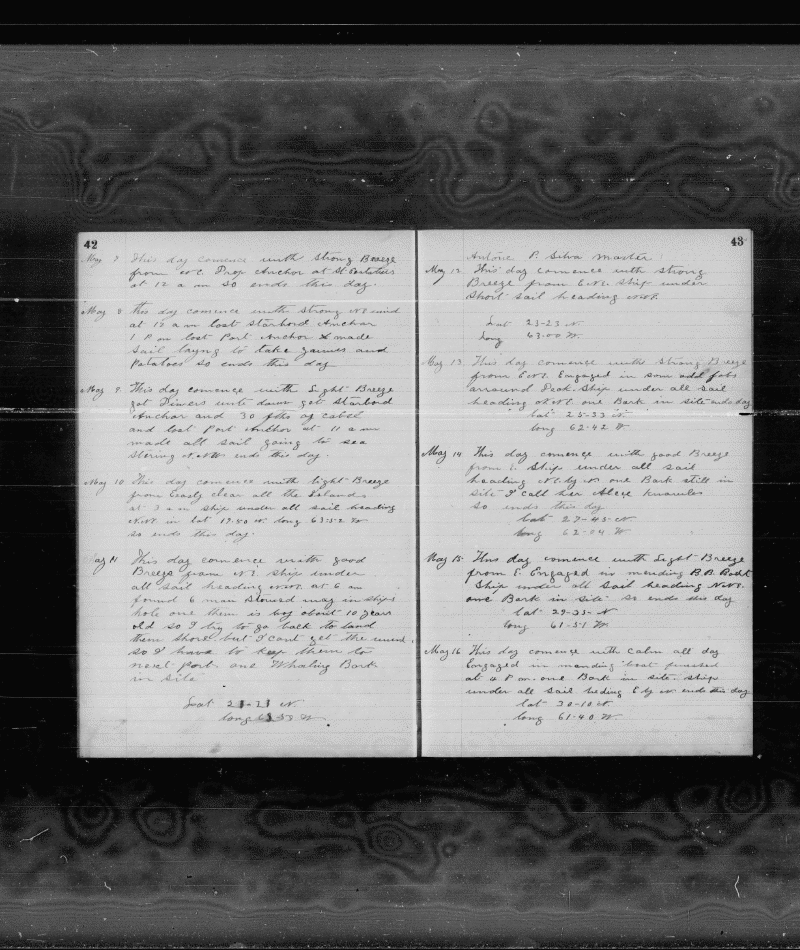 42
May 7 This day comence with strong Breeze
from NE. Drop Anchor at St
at 12 a m so ends this day.
May 8 this day comence with strong NE wind
at 12 a m lost Starbord Anchar
1 P m lost Port Anchor & made
Sail laying to take games and
Potatoes so ends this day
May 9. This day comence with Light Breeze
get Divers wnt down get Starbord
Anchar and 30 fths of cabel
and lost Port Anchor at 11 a m
made all sail going to sea
Stering N.NW ends this day.
May 10 This day comence with light Breeze
from Easty clear all the Islands
at 3 a m ship under all sail heading
N.W. in lat 17.40 N. long 63.52 W
so ends this day.
ay 11 This day comence with good
Breeze from NE ship under
all sail heading NW. at 6 am
found 6 man stowed way in ships
hole one them is boy about 10 years
old so I try to go back to land
them shore but I cant get the
so I have to keep them to
next Port. one Whaling Bark
in site
Lat 21-21 N
long 63 53 W
43
Antone P. Silva Master
May 12 This day comence with strong
Breeze from ENE. ship under
Short sail heading NW.
Lat 23-23 N
Long 63.00 W
May 13 This day comence with strong Breeze
from ENE. Engaged in som odd jobs
arround Deck. ship under all sail
heading NW one Bark in site ends day
lat 25-33 N.
long 62-42 W
May 14 This day comence with good Breeze
from E. Ship under all sail
heading N by W one Bark still in
site I call her Alice Knowles
so ends this day
Lat 27-43 N
long 62-04 W
May 15 This day comence with Light Breeze
from E. Engaged in mending B.B. Boat
Ship under all sail heading N.W.
one Bark in site so ends this day
lat 29-35-N
long 61-51 W.
May 16 This day comence with Calm all day
Engaged in manding boat finished
at 4 P m. one Bark in site. ship
under all sail heding E by N ends this day
lat 30-10 N.
long 61-40 W